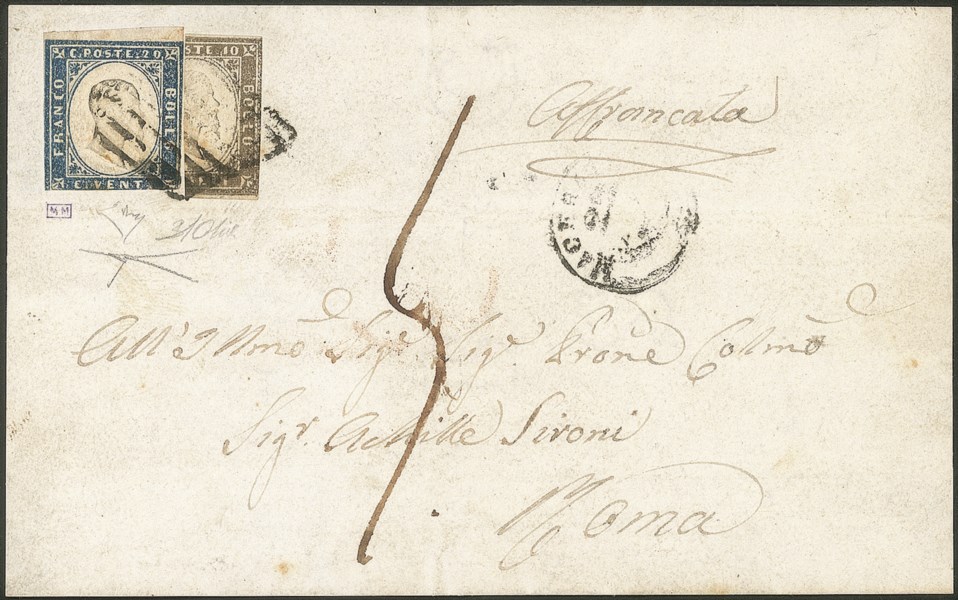 C. POSTE. 20
FRANCO
BOLL
C. VENT
STE. 10
BOLLO
Affrancata
MACER
MM
All' Illmo Sigr Sigr Prone Colmo
Sigr. Achille Sironi
Roma